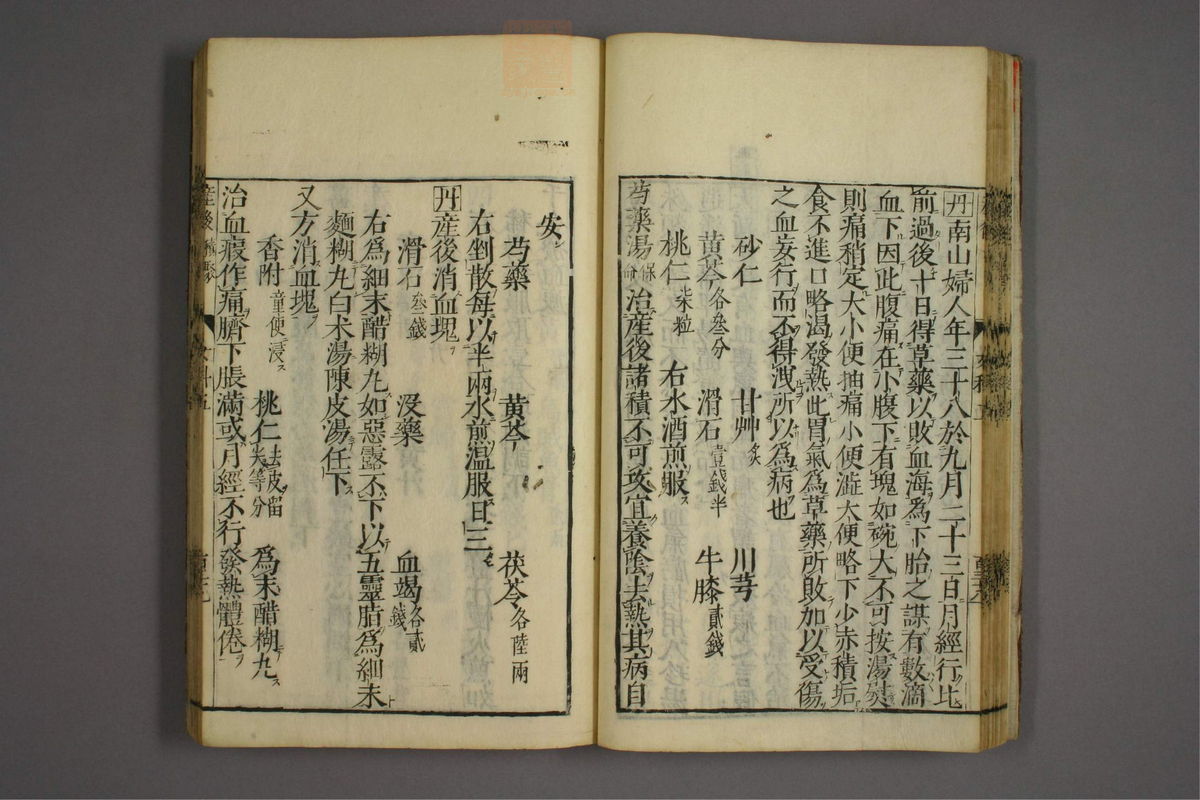 丹 南山婦人年三十八於九月二十三日月經行比
前過後十日得草藥以敗血海為下胎之謀有數滴
血下因此腹痛在小腹下有塊如碗大不可按湯熨
則痛稍定大小便抽痛小便澁大便略下少赤積垢
食不進口略渴發熱此胃氣為草藥所敗加以受傷
之血妄行而不得洩所以為病也
砂仁 甘艸炙 川芎
黃芩各叄分 滑石壹錢半 牛膝貳錢
桃仁柒粒 右水酒煎服
芍藥湯保命 治産後諸積不可攻宜養陰去熱其病自
安
芍藥 黃芩 茯苓各陸兩
右剉散每以半兩水煎温服日三
丹 産後消血塊
滑石叄錢 没藥 血竭各貳錢
右為細末醋糊丸如惡露不下以五靈脂為細末
麵糊丸白术湯陳皮湯任下
又方消血塊
香附童便浸 桃仁去皮留尖等分 為末醋糊丸
治血瘕作痛臍下脹滿或月經不行發熱體倦
産後